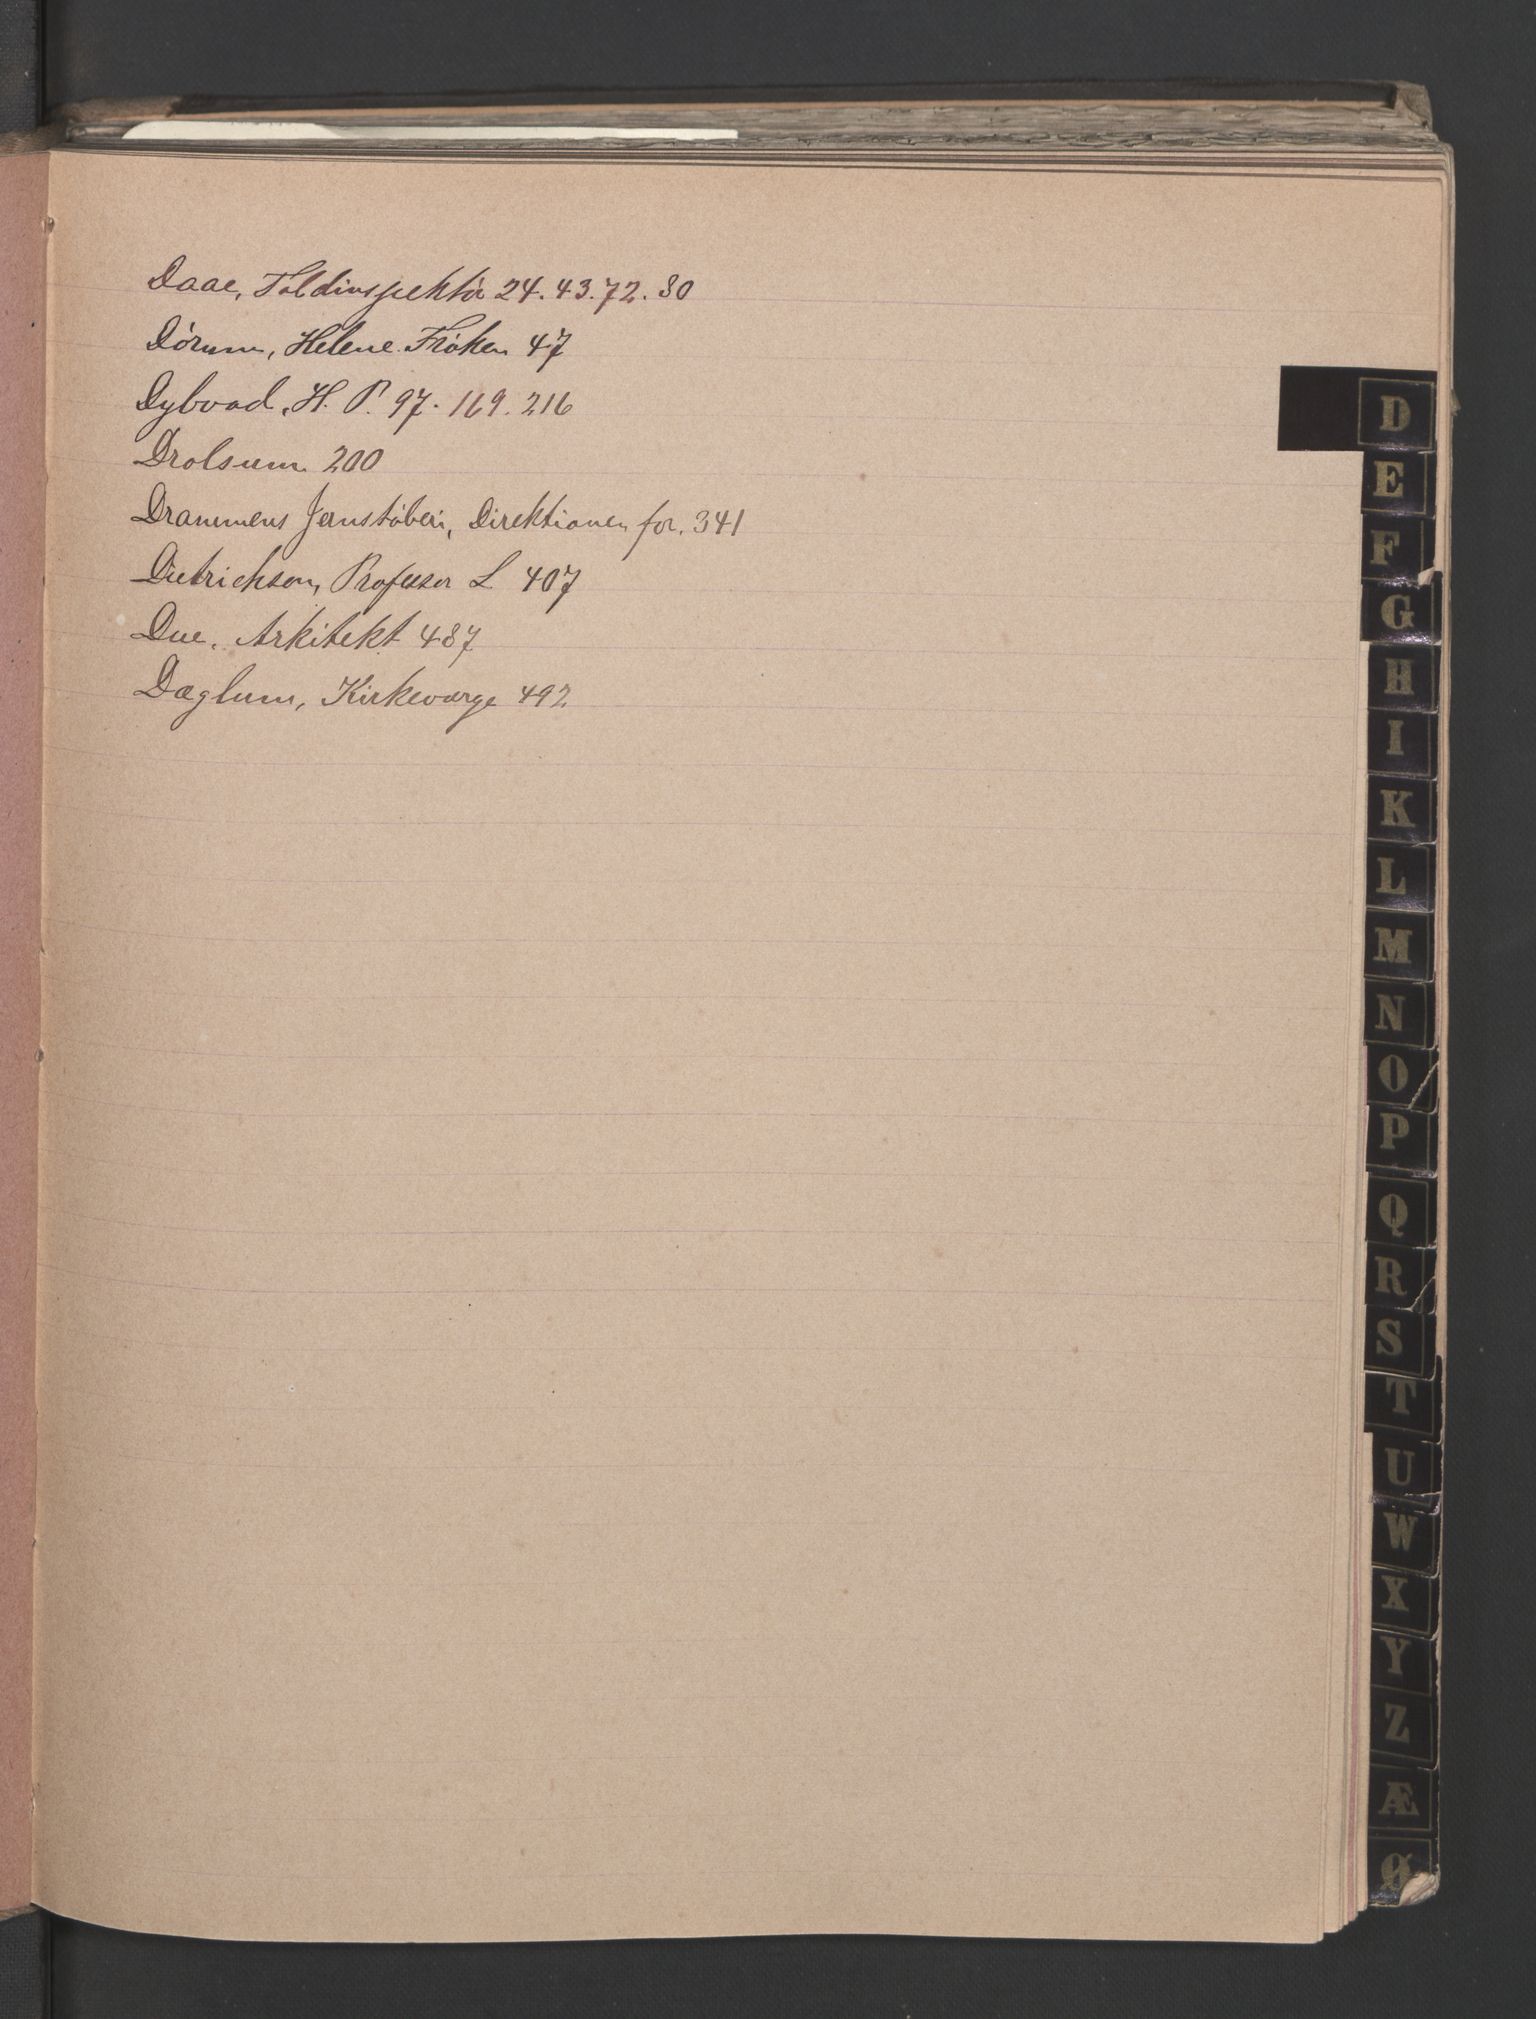 Daae, Toldinspektör 24. 43. 72. 80
Dórum, Helene Fröken 47
Dybvad, H. P. 97. 169. 216
Drolsum 200
Drammens Jernstöberi, Direktionen for. 341
Dietrichson, Professor L 407
Due. Arkitekt 487
Dæglum, Kirkeværge 492
D
E
F
G
H
I
K
L
M
N
O
P
Q
R
S
T
U
W
X
Y
Z
Æ
Ø